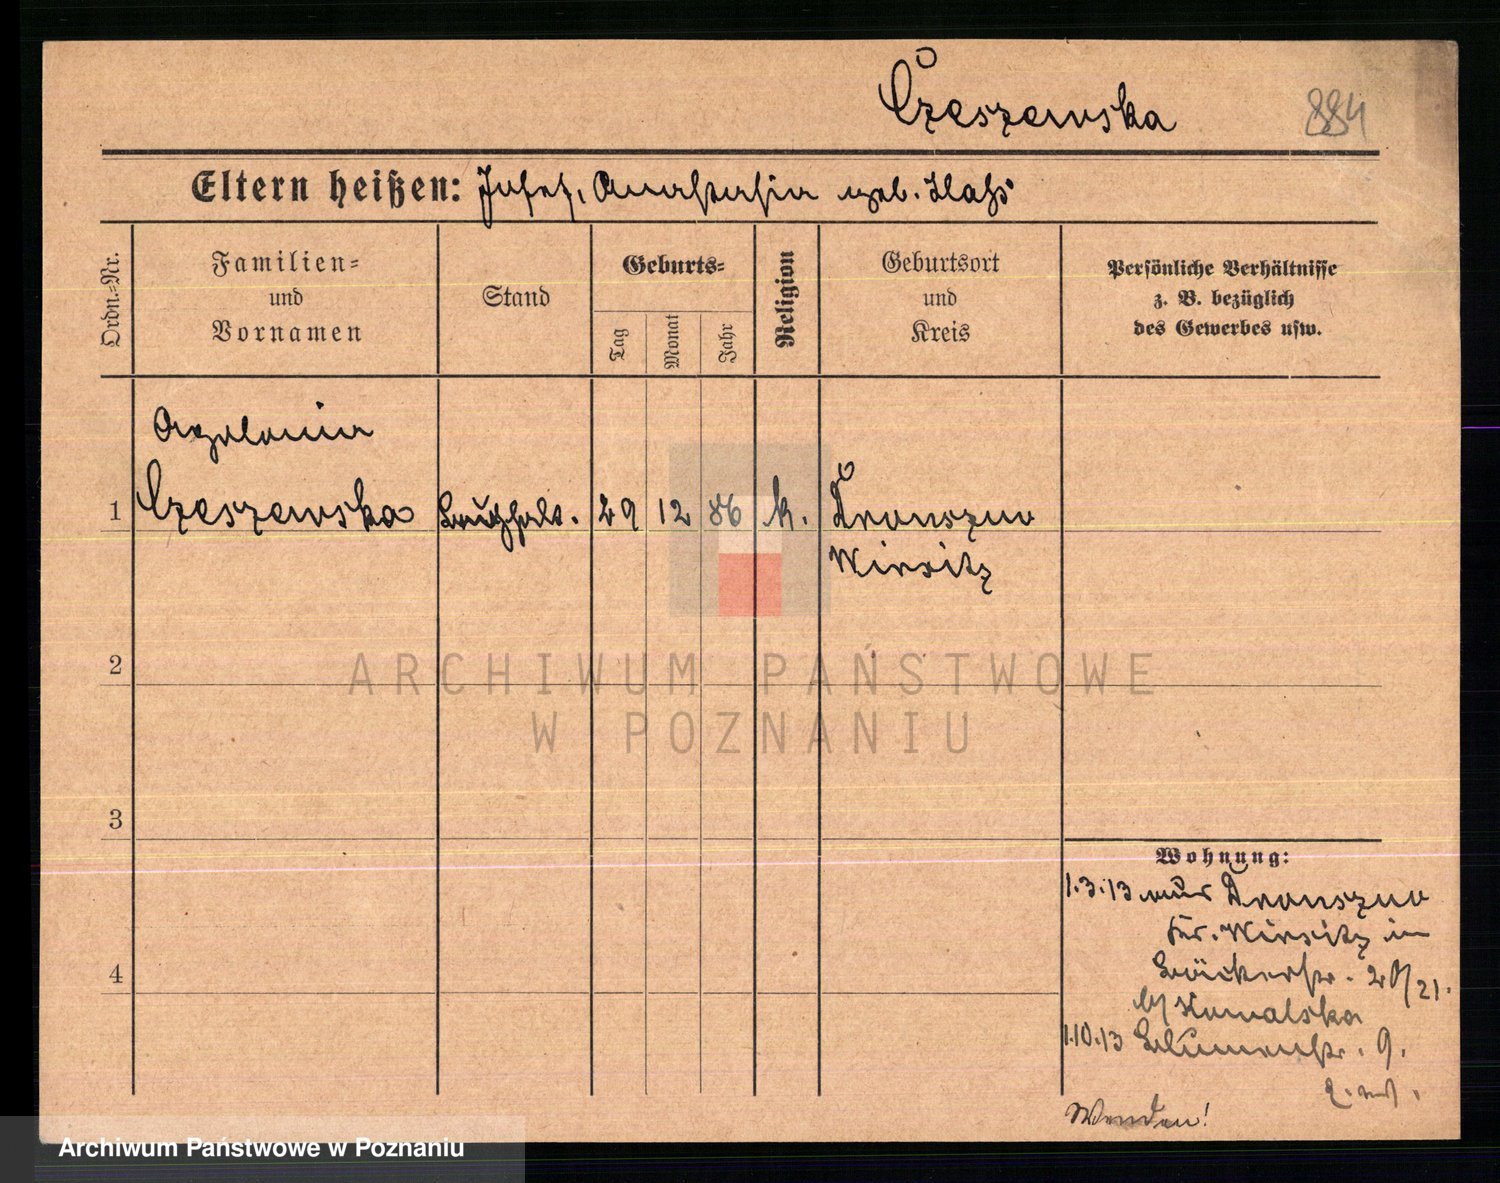 Czeszewska
884
Eltern heißen: Josef, Anastasia geb.
Ordn.-Nr.
Familien-
und
Vornamen
Stand
Geburts-
Tag
Monat
Jahr
Religion
Geburtsort
und
Kreis
Persönliche Verhältnisse
z. B. bezüglich
des Gewerbes usw.
Apolonia
1 Czeszewska Buchhalt. 29 12 86 k.
Wirsitz
2
ARCHIWUM PAŃSTWOWE
W POZNANIU
3
Wohnung:
1.3.13 aus
Kr. Wirsitz in
4
Bäckerstr. 20/21.
by Kowalska
1.10.13 Blumenstr. 9.
Wenden!
Archiwum Państwowe w Poznaniu